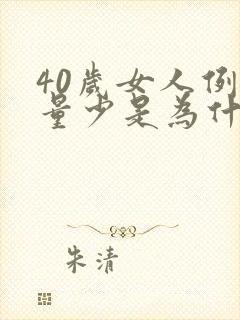 40歲女人例
量少是為什
朱清